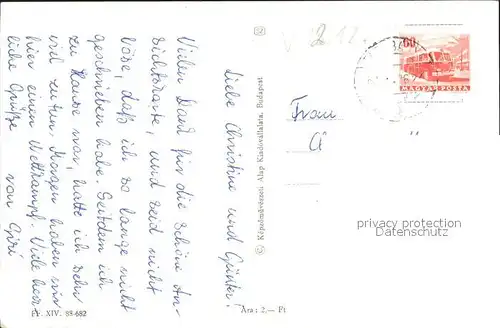 Liebe Christine und Günter!
Vielen Dank für die schöne An-
sichtskarte, und seid nicht
böse, daß ich so lange nicht
geschrieben habe. Seitdem ich
zu Hause war, hatte ich sehr
viel zu tun. Morgen haben wir
hier einen Wettkampf. Viele herz
liche Grüße
von
Fr. XIV. 88-682
Ára: 2,— Ft
© Képzőművészeti Alap Kiadóvállalata, Budapest
60
MAGYAR POSTA
Frau
privacy protection
Datenschutz